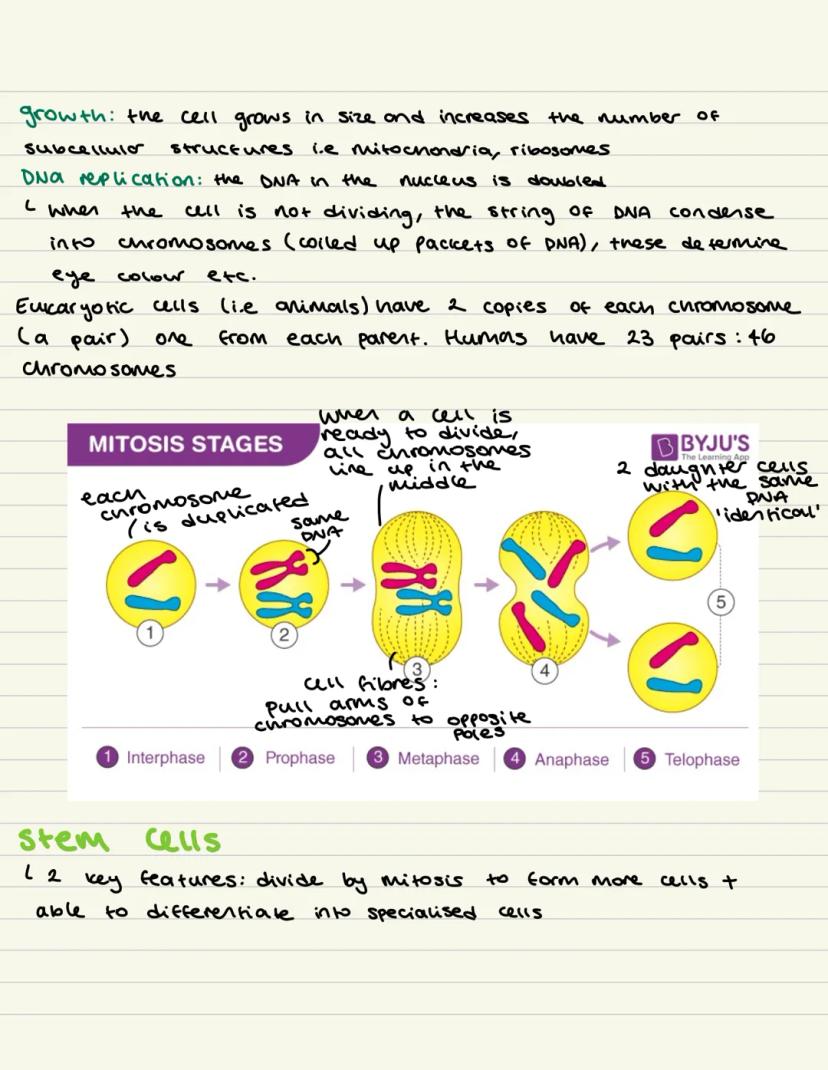 growth: the cell grows in size and increases the number of
subcellular structures i.e mitochondria, ribosomes
DNA replication: the DNA in the nucleus is doubled
↳ When the cell is not dividing, the string of DNA condense
into chromosomes (coiled up packets of DNA), these determine
eye colour etc.
Eucaryotic cells (i.e animals) have 2 copies of each chromosome
(a pair) one from each parent. Humans have 23 pairs : 46
chromosomes
MITOSIS STAGES
when a cell is
ready to divide,
all chromosomes
line up in the
middle
BYJU'S
The Learning App
each
chromosome
is duplicated
same
DNA
2 daughter cells
with the same
DNA
'identical'
1
2
3
4
5
cell fibres:
pull arms of
chromosomes to opposite
poles
1 Interphase
2 Prophase
3 Metaphase
4 Anaphase
5 Telophase
Stem cells
↳ 2 key features: divide by mitosis to form more cells +
able to differentiate into specialised cells